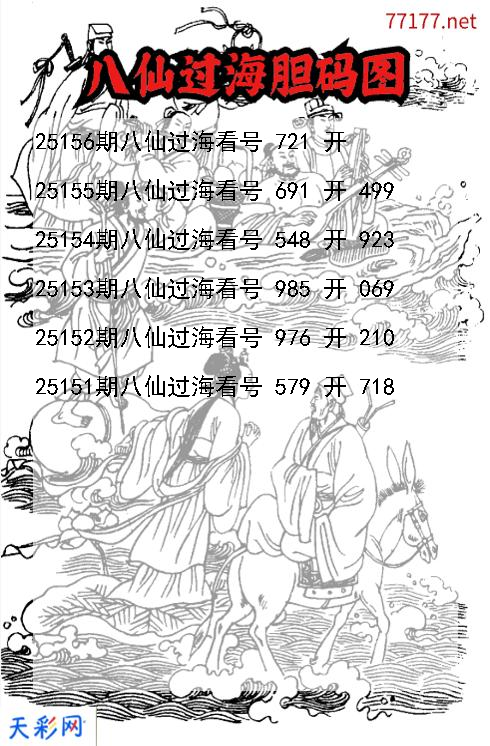 77177.net
八仙过海胆码图
25156期八仙过海看号 721 开
25155期八仙过海看号 691 开 499
25154期八仙过海看号 548 开 923
25153期八仙过海看号 985 开 069
25152期八仙过海看号 976 开 210
25151期八仙过海看号 579 开 718
天彩网